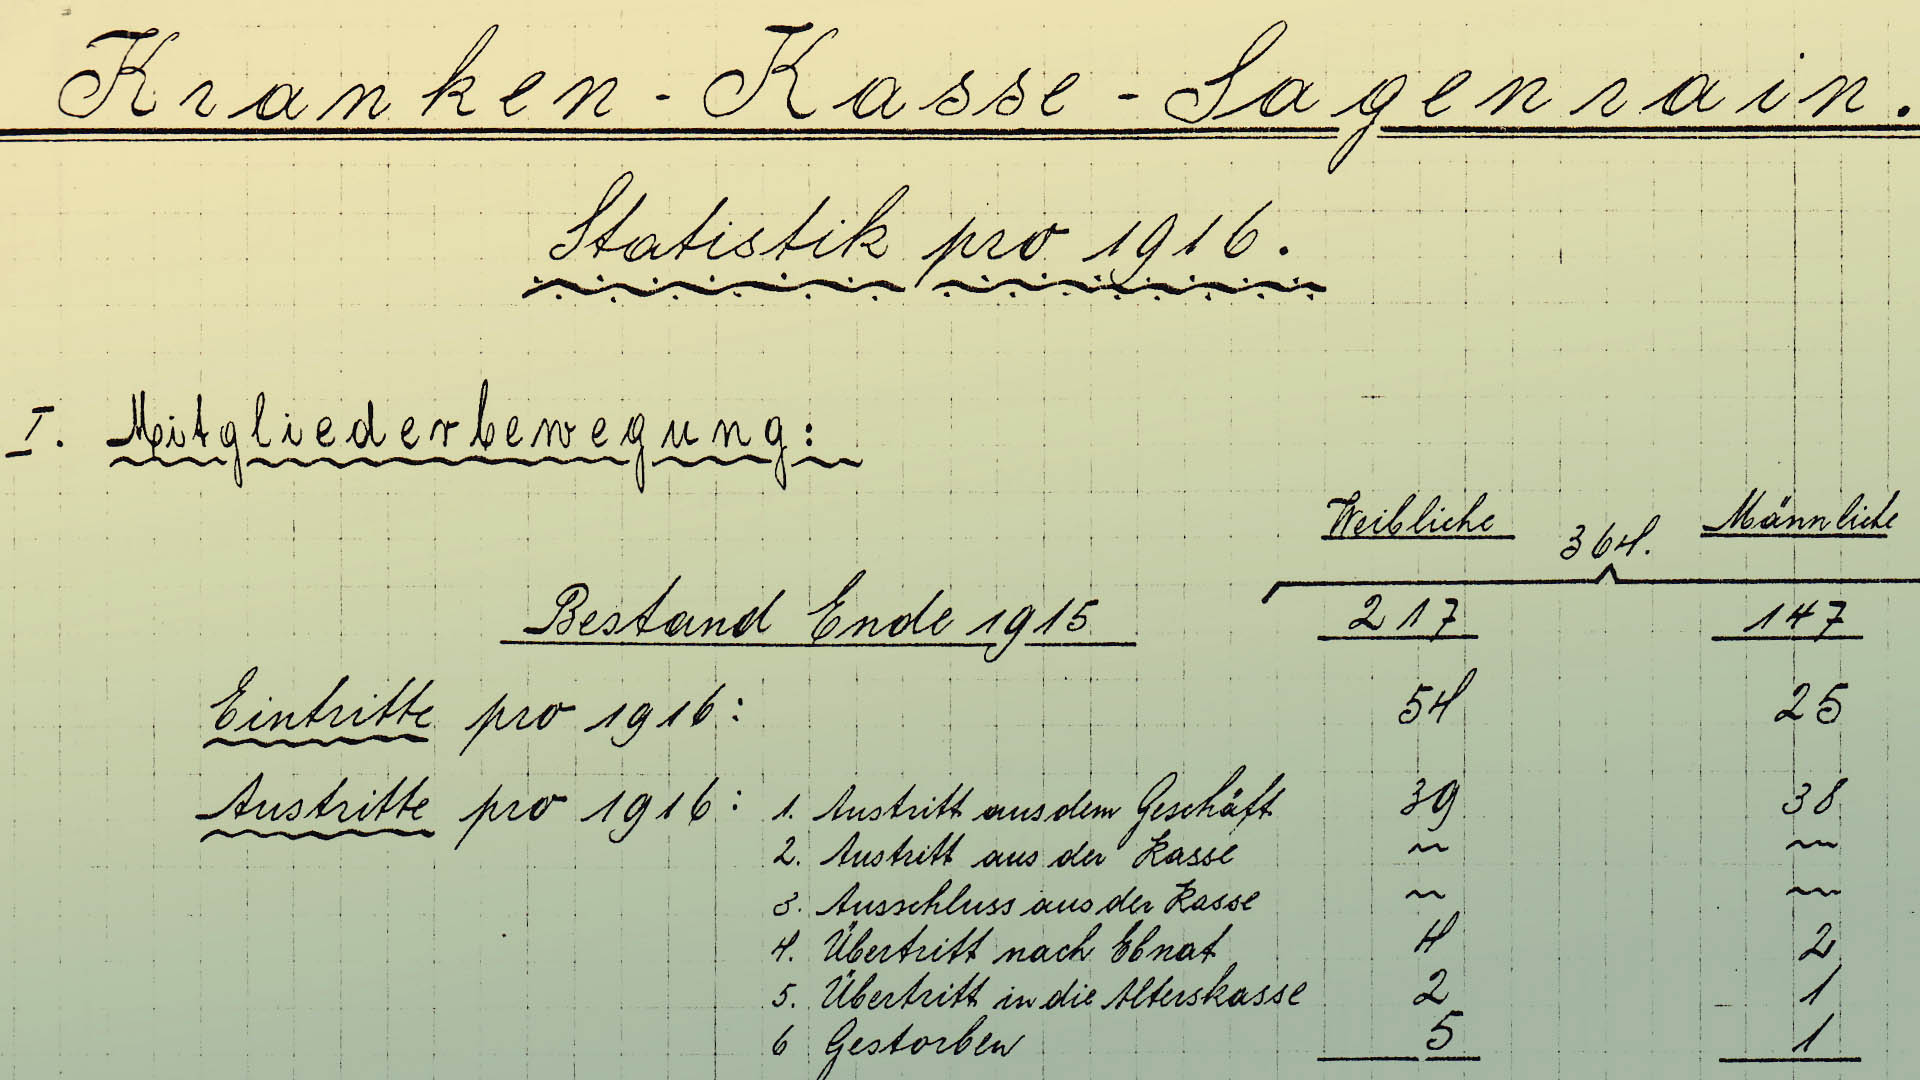 Kranken-Kasse-Sagenrain.
Statistik pro 1916.
I. Mitgliederbewegung:
Weibliche 364. Männliche
Bestand Ende 1915 217 147
Eintritte pro 1916: 54 25
Austritte pro 1916: 1. Austritt aus dem Geschäft 39 38
2. Austritt aus der Kasse ~ ~
3. Ausschluss aus der Kasse ~ ~
4. Übertritt nach Ebnat 4 2
5. Übertritt in die Alterskasse 2 1
6 Gestorben 5 1